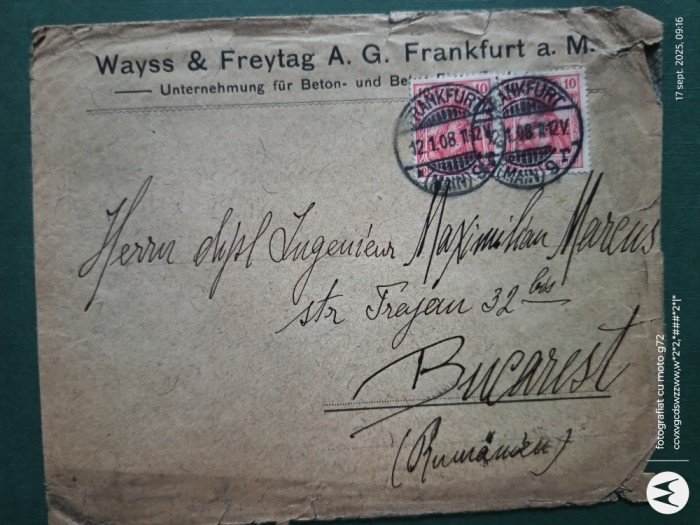 Wayss & Freytag A. G. Frankfurt a. M.
Unternehmung für Beton- und
10 10
FRANKFURT
12.1.08.11-12V.
(MAIN) 9
FRANKFURT
12.1.08.11-12V.
(MAIN) 9
Herrn dipl Ingenieur Maximilian Marcus
str Trajan 32 bis
Bucarest
(Rumänien)
17 sept. 2025, 09:16
fotografiat cu moto g72
ccvxvgcdswzzwwwvw,w*2*2,*###*2*|*